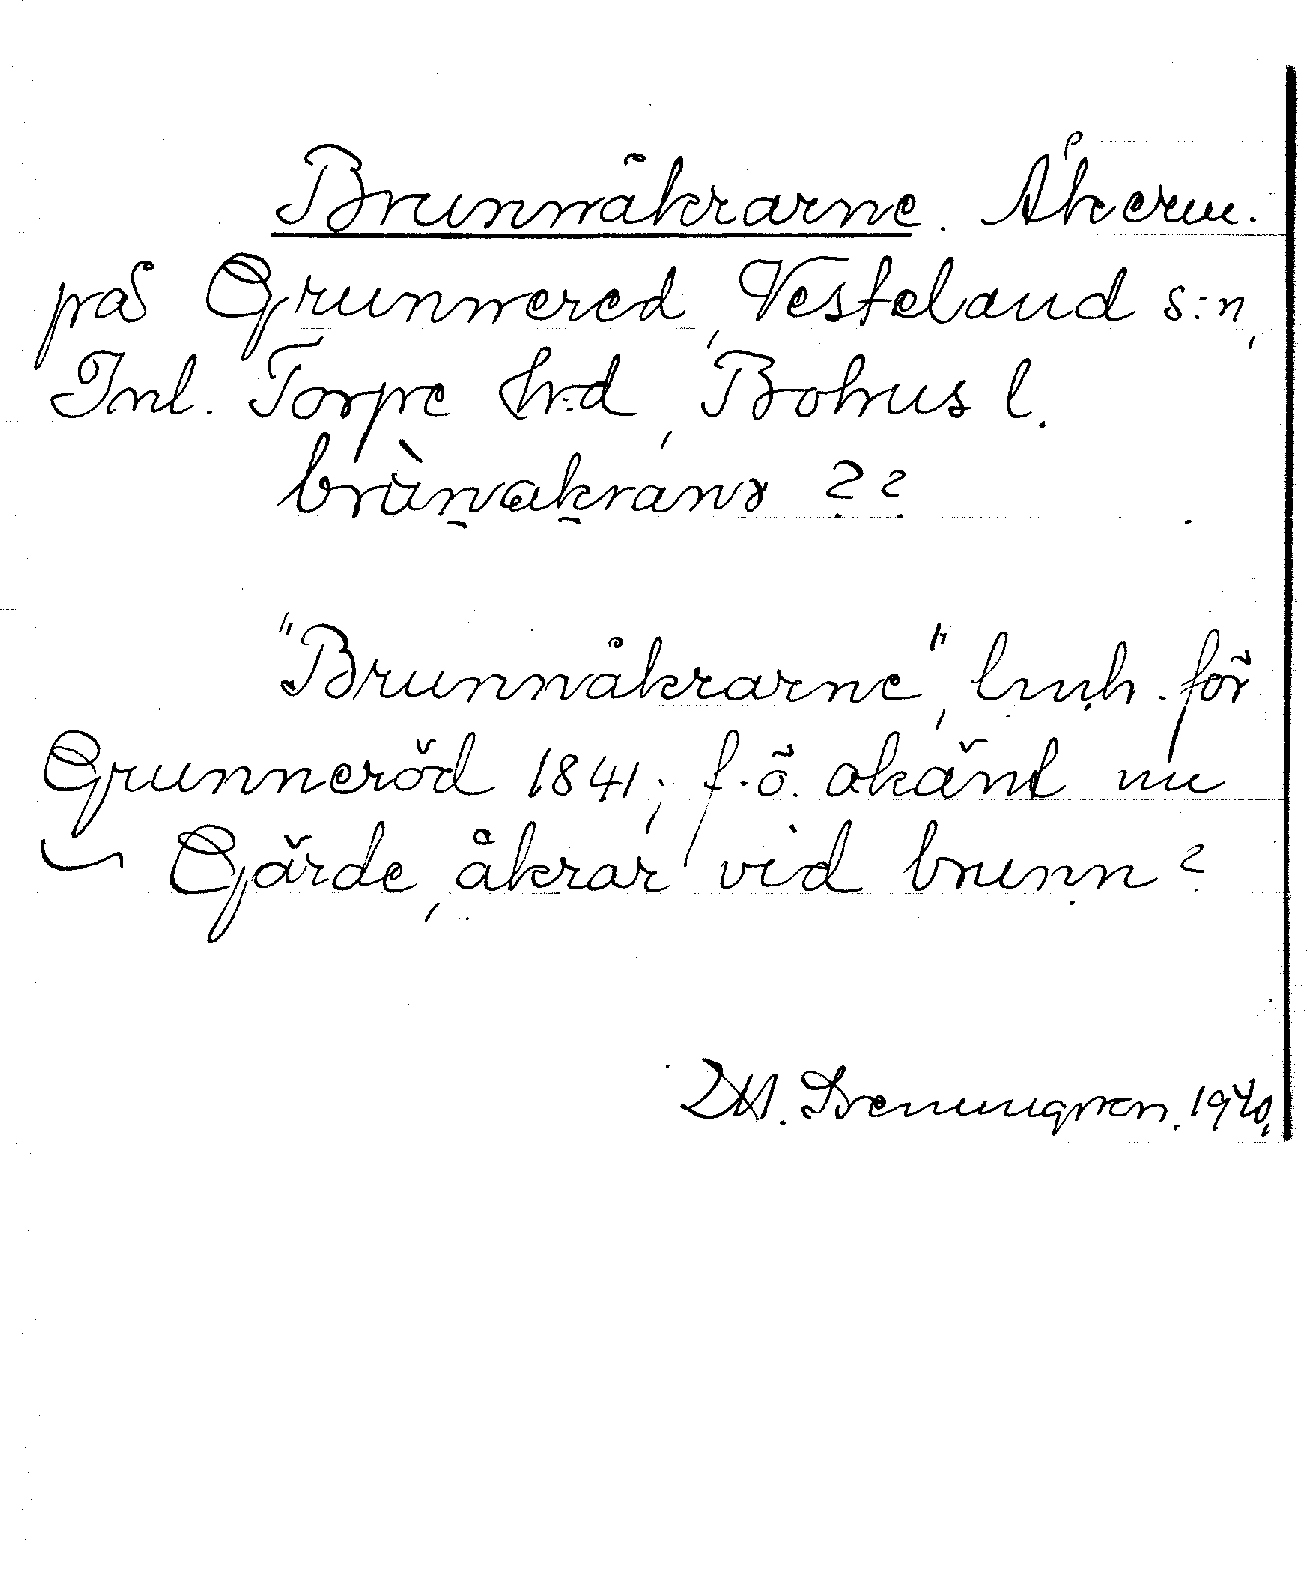 Brunnåkrarne. Åkerm.
på Grunnered, Vesteland s:n,
Inl. Torpe hrd, Bohus l.
brùnakranɤ ??
"Brunnåkrarne", lmh. för
Grunneröd 1841; f.ö. okänt nu
Gärde, åkrar vid brunn?
1940.